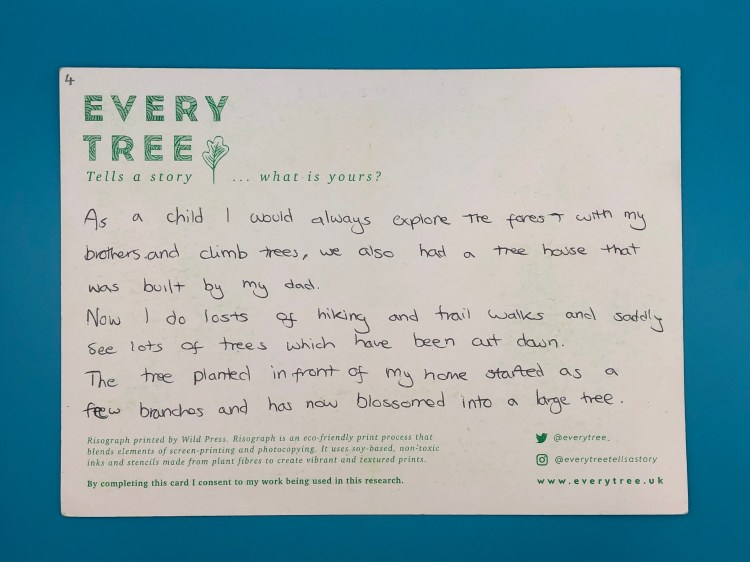 4
EVERY
TREE
Tells a story ... what is yours?
As a child I would always explore the forest with my
brothers and climb trees, we also had a tree house that
was built by my dad.
Now I do losts of hiking and trail walks and saddly
see lots of trees which have been cut down.
The tree planted in front of my home started as a
few branches and has now blossomed into a large tree.
Risograph printed by Wild Press. Risograph is an eco-friendly print process that
blends elements of screen-printing and photocopying. It uses soy-based, non-toxic
inks and stencils made from plant fibres to create vibrant and textured prints.
By completing this card I consent to my work being used in this research.
@everytree_
@everytreetellsastory
www.everytree.uk